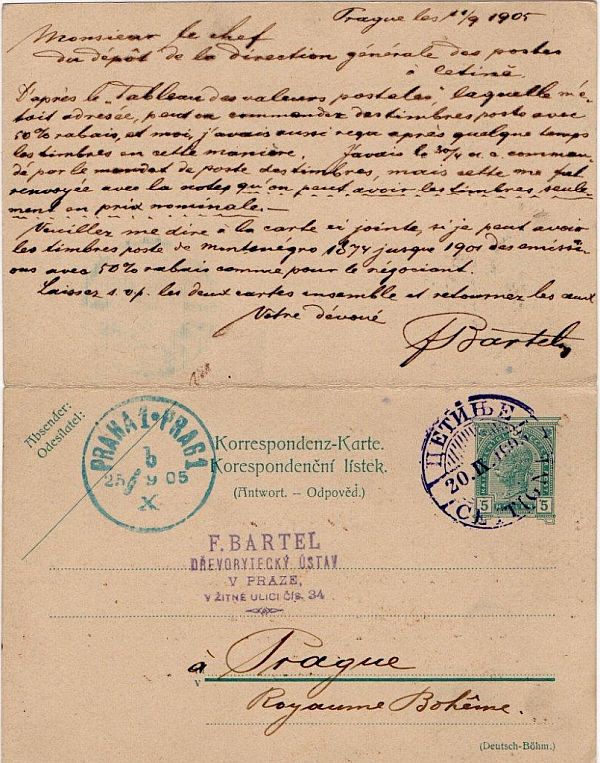 Prague les 11/9 1905
Monsieur le chef
du dépôt de la direction générale des postes
à Cetině.
D'après le „Tableau des valeurs postales" laquelle m'é-
tait adresée, peut on commander des timbres poste avec
50% rabais, et moi, j'avais aussi reçu après quelque temps
les timbres en cette manière. J'avais le 30/4 a. c. comman-
dé par le mandat de poste des timbres, mais cette me fut
renvoyée avec la notes qu'on peut avoir les timbres seule-
ment en prix nominale.—
Veuillez me dire à la carte ci jointe, si je peut avoir
les timbres poste de Montenegro 1874 jusque 1901 des emissi-
ons avec 50% rabais comme pour le négociant.
Laissez s. v. p. les deux cartes ensemble et retournez les
Votre dévoué
F Bartel
Absender:
Odesílatel:
PRAHA 1 · PRAG 1
b
25 9 05
X
ЦЕТИЊЕ
20. IX. 1905
CETIGNE
5 5
Korrespondenz-Karte.
Korespondenční lístek.
(Antwort. – Odpověď.)
F. BARTEL
DŘEVORYTECKÝ ÚSTAV
V PRAZE,
V ŽITNÉ ULICI ČÍS. 34
à Prague
v
Royaume Bohême.
(Deutsch-Böhm.)